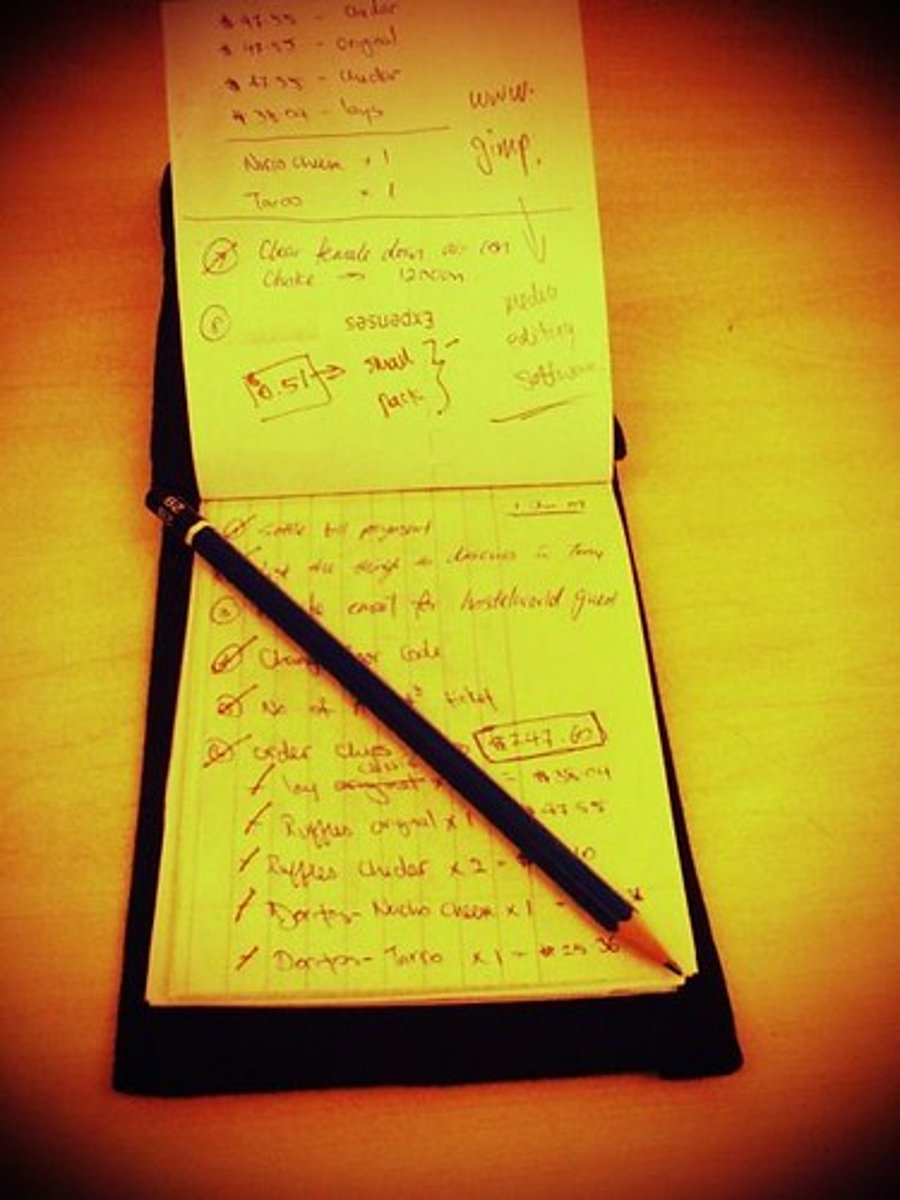 $47.55 - Chedar
$47.55 - Original
$47.55 - Chedar
$38.04 - lays
Nacho Cheese x 1
Tarco x 1
www.
gimp.
Clear female down air con
choke → 120cm
Expenses
$0.51 → small
pack
media
editing
software
Settle bill payment
to discuss
email for hostelworld guest
Change door Code
No of ticket
Order chips $247.60
lay original = $38.04
Ruffles original x 1 47.55
Ruffles Chedar x 2 - $
Doritos - Nacho Cheese x 1 -
Doritos - Tarco x 1 - $25.36